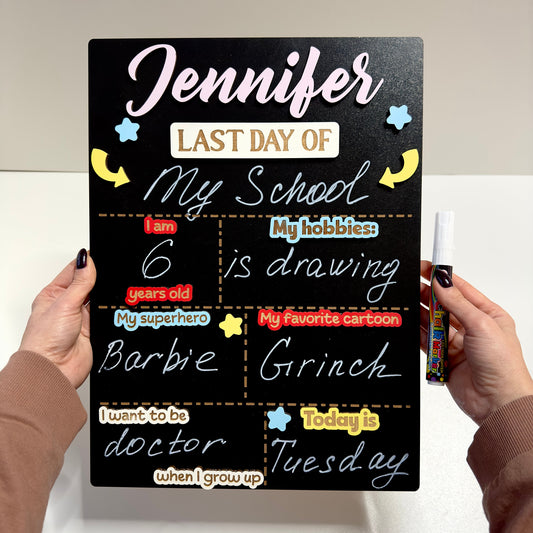 Jennifer
LAST DAY OF
My School
I am
6
years old
My hobbies:
is drawing
My superhero
Barbie
My favorite cartoon
Grinch
I want to be
doctor
when I grow up
Today is
Tuesday